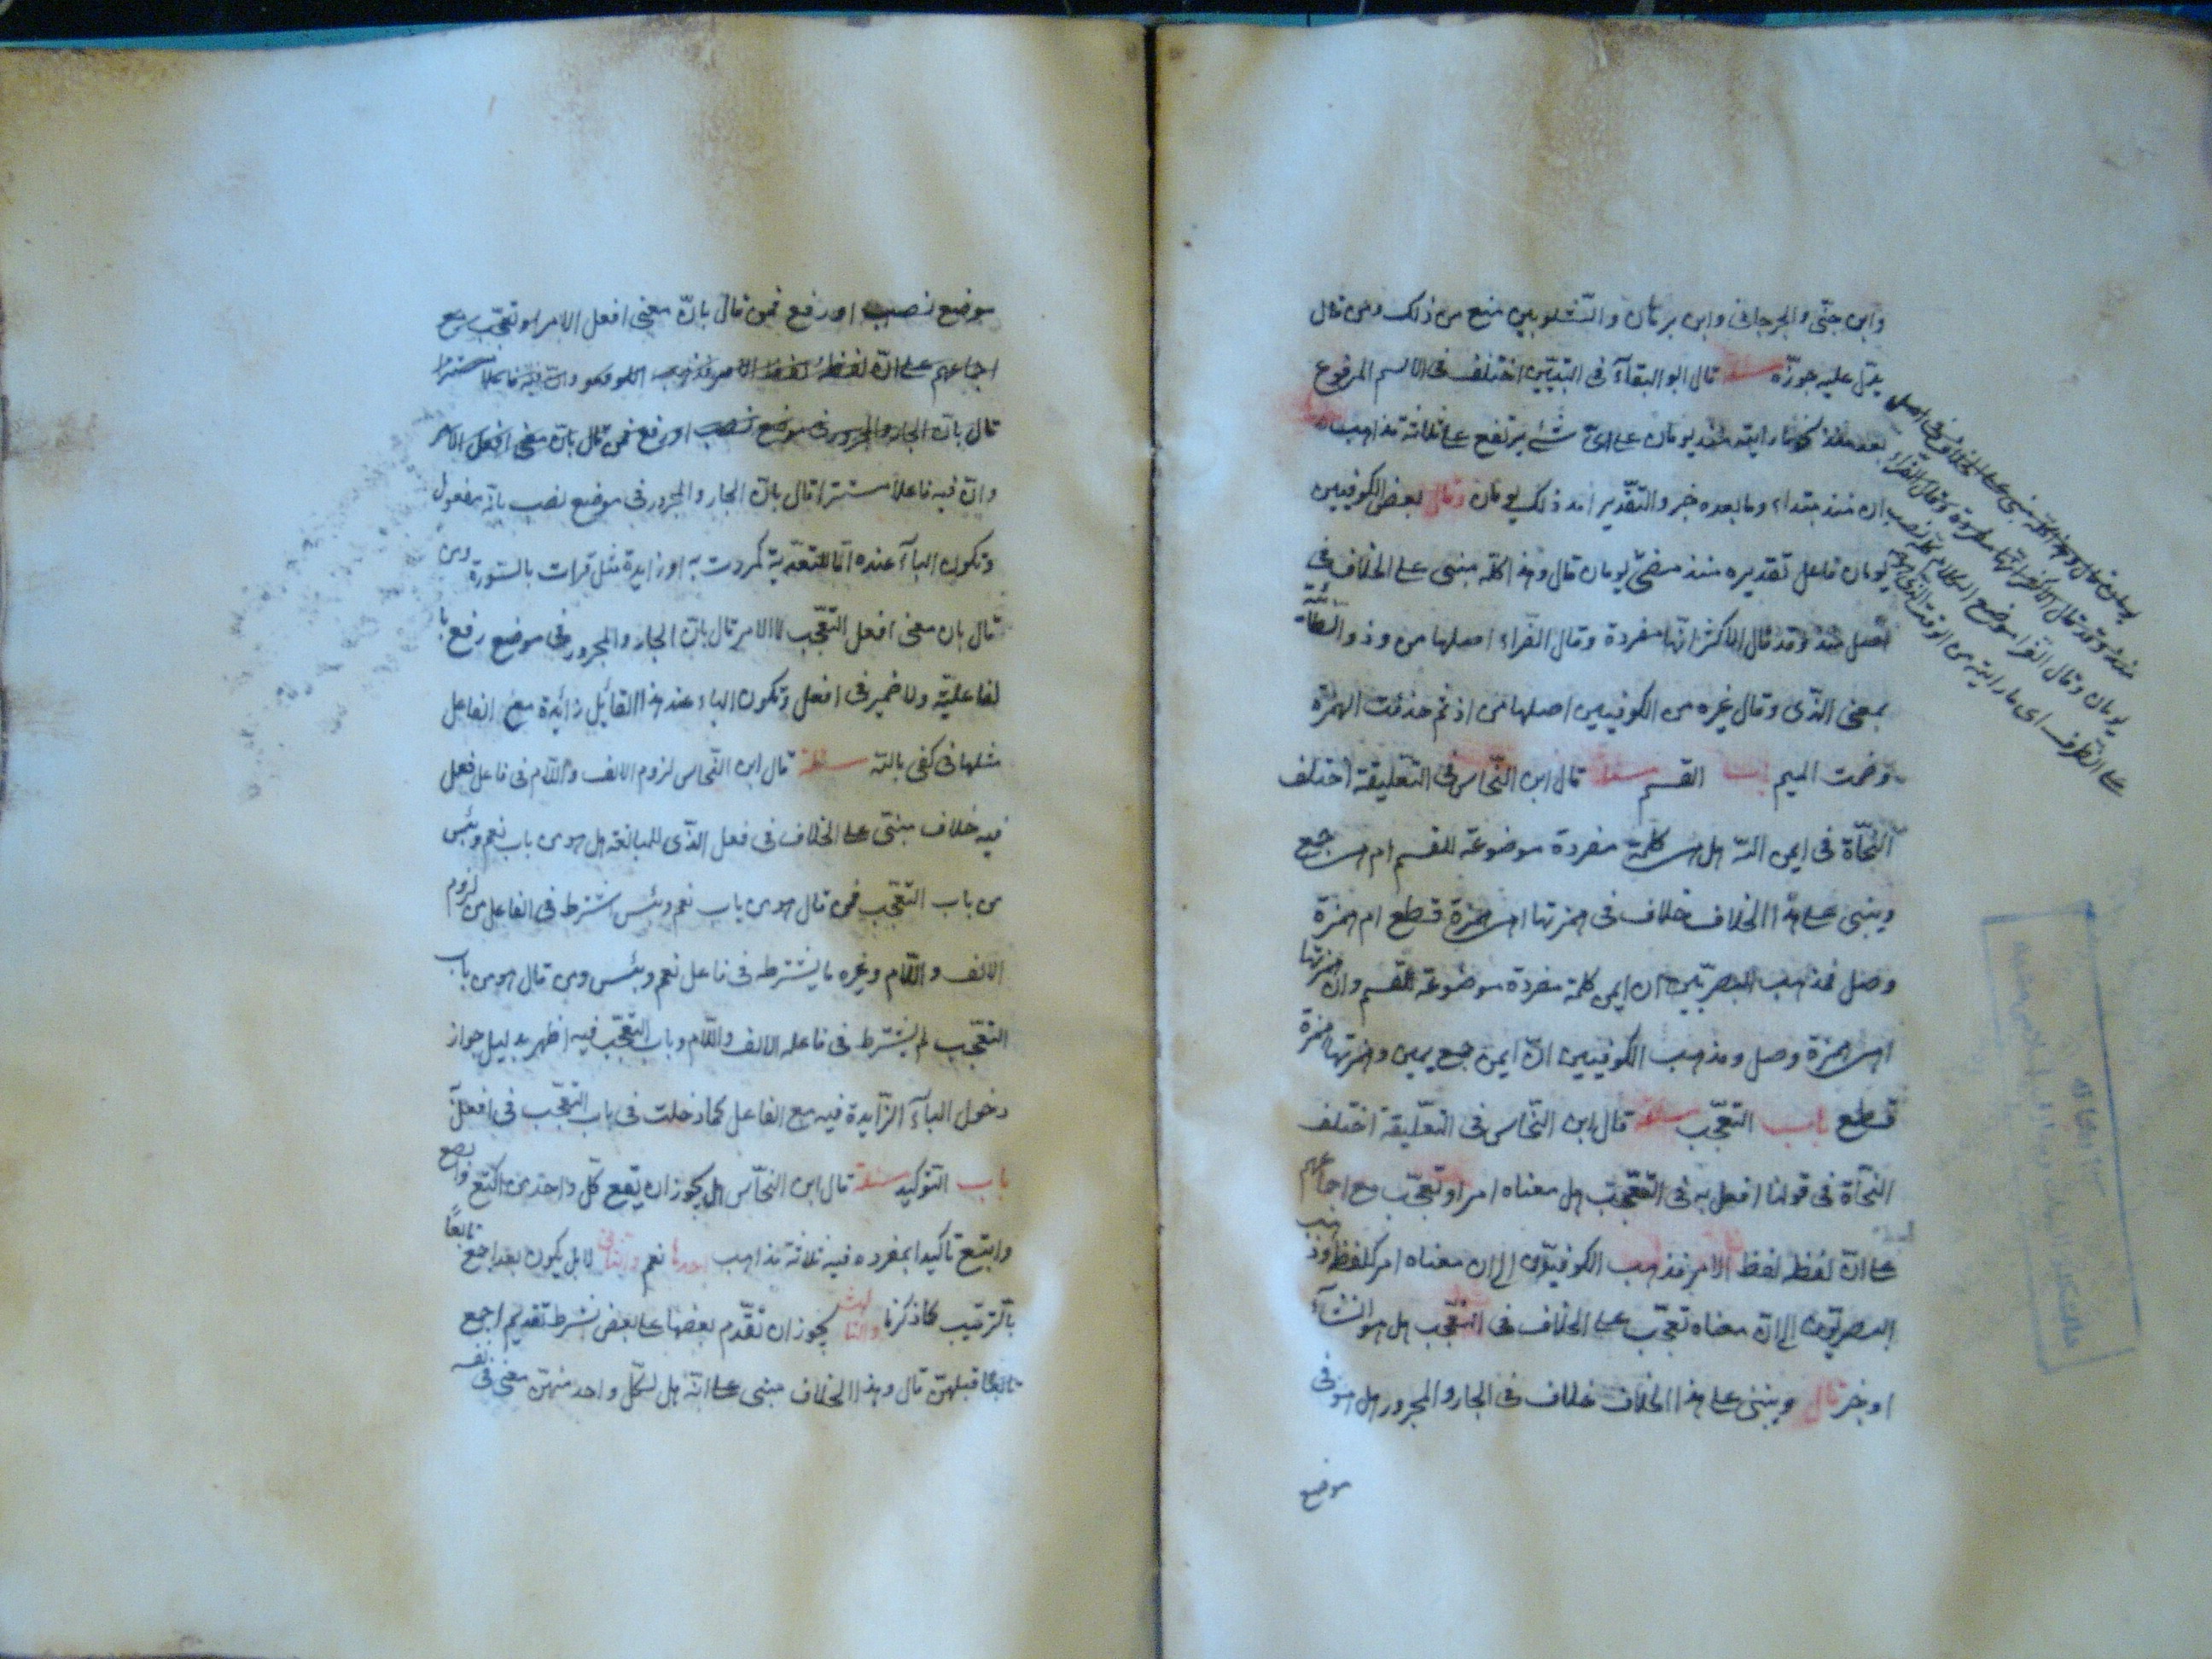 وابن جنّى والجرجانى وابن برهان والشلوبين منع من ذلك ومن قال
يدلّ عليه جوزّه مسئلة قال ابو البقآء فى التبيين اختلف فى الاسم المرفوع
بعد منذ نحو ما رايته منذ يومان على اىّ شئ يرتفع على ثلاثة مذاهب
ان منذ مبتداء وما بعده خبر والتقدير امد ذلك يومان وقال بعض الكوفيين
يومان فاعل تقديره منذ مضىّ يومان قال وهذا كلّه مبنى على الخلاف فى
اصل منذ وقد قال الاكثر انها مفردة وقال الفراء اصلها من وذو الطائية
بمعنى الذّى وقال غيره من الكوفيين اصلها من اذ ثم حذفت الهمزة
وضمت الميم باب القسم مسئلة قال ابن النّحاس فى التعليقة اختلف
النّحاة فى ايمن اللّه هل هى كلمة مفردة موضوعة للقسم ام هى جمع
وينبى على هذا الخلاف خلاف فى همزتها اهى همزة قطع ام همزة
وصل فمذهب البصريّين ان ايمن كلمة مفردة موضوعة للقسم وان همزتها
همزة وصل ومذهب الكوفيين انّ ايمن جمع يمين وهمزتها همزة
قطع باب التعجّب مسئلة قال ابن النّحاس فى التعليقة اختلف
النحاة فى قولنا افعل به فى التعجّب هل معناه امر او تعجّب مع اجماعهم
على انّ لفظه لفظ الامر فذهب الكوفيون الى ان معناه امر كلفظه وذهب
البصريّون الى انّ معناه تعجّب على الخلاف فى التعجّب هل هو انشاء
او خبر قال وينبنى على هذا الخلاف خلاف فى الجار والمجرور هل هو فى
موضع
يومان وقال الفرا موضع الكلام كلّه نصب
على الظرف اى ما رايته من الوقت الذى هو
موضع نصب او رفع فمن قال بانّ معنى افعل الامر او تعجّب مع
اجماعهم على انّ لفظه لفظ الامر فذهب وانّ فيه فاعلا مستترا
قال بان الجار والمجرور فى موضع نصب او رفع فمن قال بان معنى افعل الامر
وانّ فيه فاعلا مستترا قال بانّ الجار والمجرور فى موضع نصب بانّه مفعول
وتكون البآء عنده امّا للتعدّية كمررت به او زايدة مثل قرات بالسّورة ومن
قال بان معنى افعل التعجّب لا الامر قال بانّ الجار والمجرور فى موضع رفع با
لفاعليّة ولا ضمير فى افعل وتكون الباء عند هذا القايل زائدة مع الفاعل
مثلها فى كفى باللّه مسئلة قال ابن النحاس لزوم الالف واللّام فى فاعل فعل
فيه خلاف مبنىّ على الخلاف فى فعل الذّى للمبالغة هل هو من باب نعم وبئس
من باب التعجّب فمن قال هو من باب نعم وبئس اشترط فى الفاعل من لزوم
الالف واللّام وغيره ما يشترط فى فاعل نعم وبئس ومن قال هو من باب
التعجّب لم يشترط فى فاعله الالف واللّام وباب التعجّب فيه اظهر بدليل جواز
دخول البآء الزّايدة فيه مع الفاعل كما دخلت فى باب التعجّب فى افعل
باب التوكيد مسئلة قال ابن النحّاس هل يجوز ان يقع كلّ واحد من اكتع وابصع
وابتع تاكيدا بمفرده فيه ثلاثة مذاهب احدها نعم والثانى لا بل يكون بعد اجمع تابعًا
بالترتيب كما ذكرنا والثالث يجوز ان تقدّم بعضها على بعض بشرط تقديم اجمع
تابعًا قبلهنّ قال وهذا الخلاف مبنى على انّه هل لكلّ واحد منهنّ معنى فى نفسه